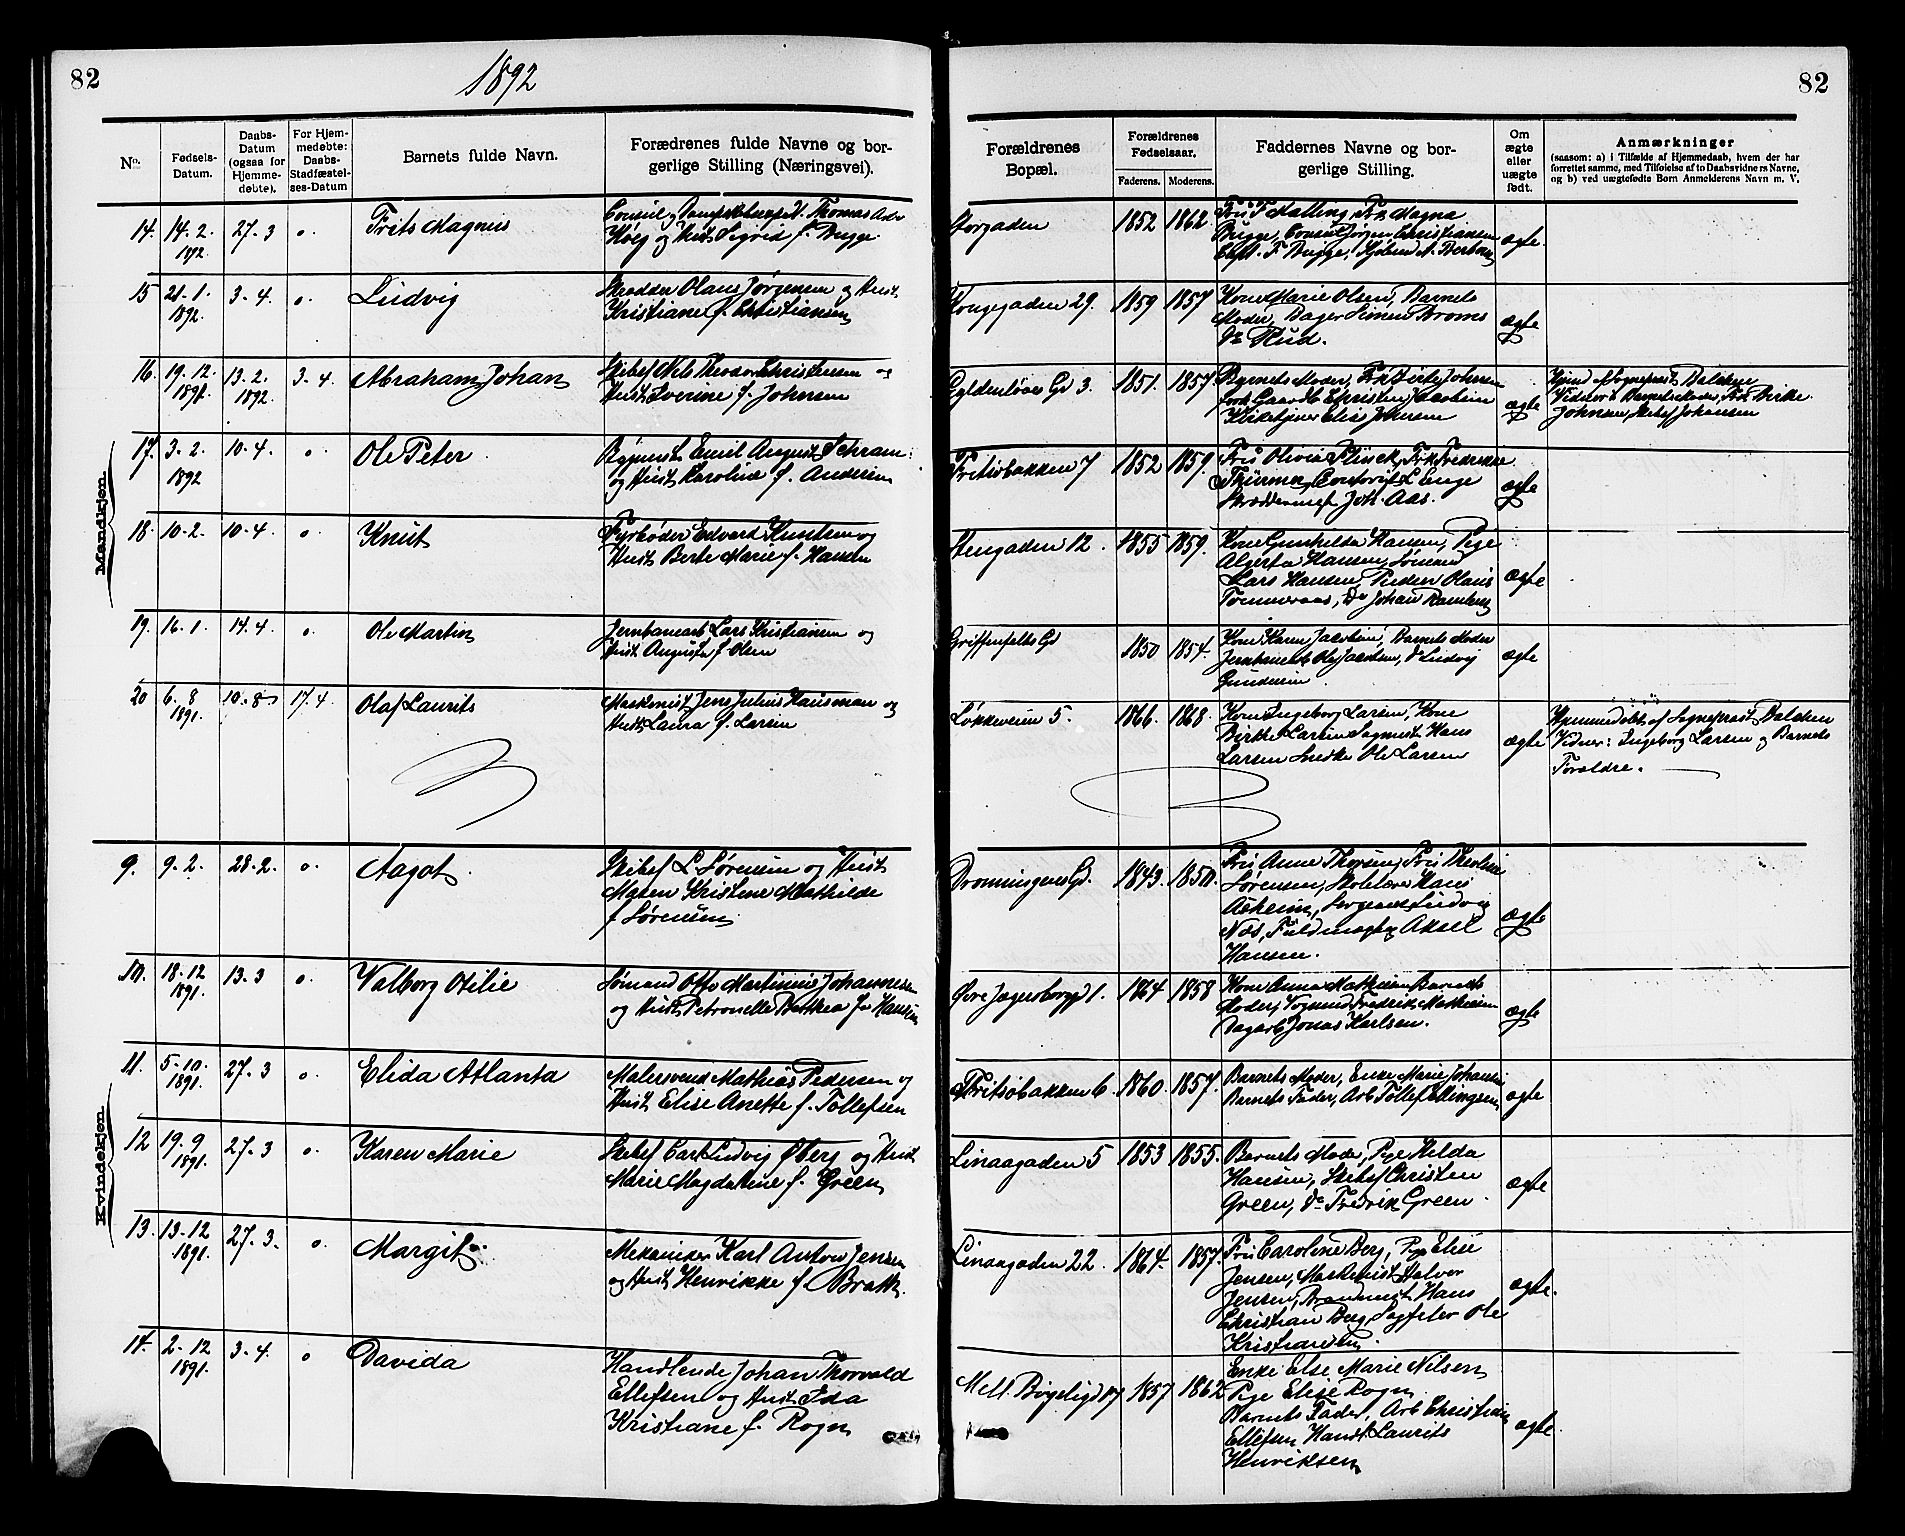 82
1892
82
No.
Fødsels-Datum.
Daabs-Datum (ogsaa for Hjemmedøbte).
For Hjemmedøbte: Daabs-Stadfæstelses-Datum
Barnets fulde Navn.
Forædrenes fulde Navne og borgerlige Stilling (Næringsvei).
Forældrenes Bopæl.
Forældrenes Fødselsaar.
Faderens.
Moderens.
Faddernes Navne og borgerlige Stilling.
Om ægte eller uægte født.
Anmærkninger
(saasom: a) i Tilfælde af Hjemmedaab, hvem der har
forrettet samme, med Tilføielse af to Daabsvidners Navne,
og b) ved uægtefødte Børn Anmelderens Navn m. V.
Mandkjøn
14. 14.2. 1892. 27.3 o. Frits Magnus
Consul og Thomas
Høeg og Hust Sigrid f. Bugge
Storgaden 1852 1862
Fru F Malling, Frk Magna
Bugge, Consul Jørgen Christiansen
Capt. F Bugge,
ægte.
15 21.1. 1892. 3.4. o. Ludvig
Skrædder Olaus Jørgensen og Hust
Kristiane f. Christiansen
Kongegaden 29. 1859 1857
Kone Marie Olsen, Barnets
Moder, Bager Simen
Do Rud.
ægte
16. 19.12. 1891. 13.2. 1892. 3.4. Abraham Johan
Skibsf Nils Theodor Christensen og
Hust Severine f. Johnsen
Gyldenløves Gd 3. 1851. 1857.
Barnets Moder, Johnsen
Christen Jacobsen
Elise Johnsen
ægte
Hjemd af Sogneprest
Vidner: Barnets Moder, Frk Birke
Johnsen, Skibsf Johansen
17. 3.2. 1892 10.4. o Ole Peter.
Emil August Schram
og Hust Karoline f. Andersen
Fritsøbakken 7 1852 1859.
Fru Olivia Flinck, Frk Fredrikke
Thurmer, Lange
Skræddermest Joh. Aas.
ægte
18. 10.2. 10.4. o. Knut
Fyrbøder Edvard Knutsen og
Hust Berte Marie f. Hansen
Stengaden 12. 1855 1859.
Kone Gunhilda Hansen, Pige
Hansen, Sømand
Lars Hansen, Olaus
Do Johan
ægte
19. 16.1. 14.4. o. Ole Martin
Jernbanearb Lars Kristiansen og
Hust Augusta f. Olsen
Griffenfelts Gd 1850 1854.
Kone Karen Jacobsen, Barnets Moder
Ole Jacobsen, do Ludvig
Gundersen
ægte
20 6.8 1891. 10.8 17.4. Olaf Laurits
Maskinist Jens Julius Hausman og
Hust Laura f. Larsen
Løkkeveien 5. 1866. 1868.
Kone Ingeborg Larsen, Kone
Birthe Larsen Hans
Larsen Snedker Ole Larsen
ægte
Hjemmedøbt af Sogneprest
Vidner: Ingeborg Larsen og Barnets
Forældre.
Kvindekjøn
9. 9.2. 28.2. o. Aagot.
Skibsf L Sørensen og Hust
Maren Kristine Mathilde
f Sørensen
Dronningens Gd. 1843. 1850.
Fru Anne Thorsen, Fru
Sørensen, Skolelærer Hans
Aaheim, Sergeant Ludvig
Næs, Fuldmægtig Aksel
Hansen.
ægte
10. 18.12 1891. 13.3 o. Valborg Otilie
Sømand Otto Martinius Johannesen
og Hust Petronelle Berthea f. Hansen
Øvre Jegersborgd 1. 1864 1858
Kone Anna Mathisen Barnets
Moder, Fredrik Mathisen
Dagarb Jonas Karlsen.
ægte
11. 5.10. 1891. 27.3 o. Elida Atlanta
Malersvend Mathias Pedersen og
Hust Elise Anette f. Tollefsen
Fritsøbakken 6. 1860. 1857.
Barnets Moder, Enke Marie Johansen
Barnets Fader, Arb Tollef Ellingsen
ægte
12 19.9 1891. 27.3 o. Karen Marie
Skibsf Carl Ludvig Øberg og Hust
Marie Magdalene f. Green
Linaagaden 5 1853 1855.
Barnets Moder, Pige Hilda
Hansen, Skibsf Christen
Green, do Fredrik Green.
ægte
13. 13.12 1891. 27.3. o. Margit.
Mekaniker Karl Anton Jensen
og Hust Henrikke f. Brath.
Linaagaden 22. 1864. 1857.
Fru Caroline Berg, Pige Elise
Jensen, Maskinist Halvor
Jensen, Hans
Christian Berg, Sagfiler Ole
Kristiansen.
ægte.
14. 2.12 1891. 3.4. o Davida
Handlende Johan Thorvald
Ellefsen og Hust Ida
Kristiane f. Rogn
Mell. Bøgelig 17 1857 1862
Enke Else Marie Nilsen
Pige Elise Rogn
Barnets Fader, Arb Christian
Ellefsen, Handl. Laurits
Henriksen
ægte.